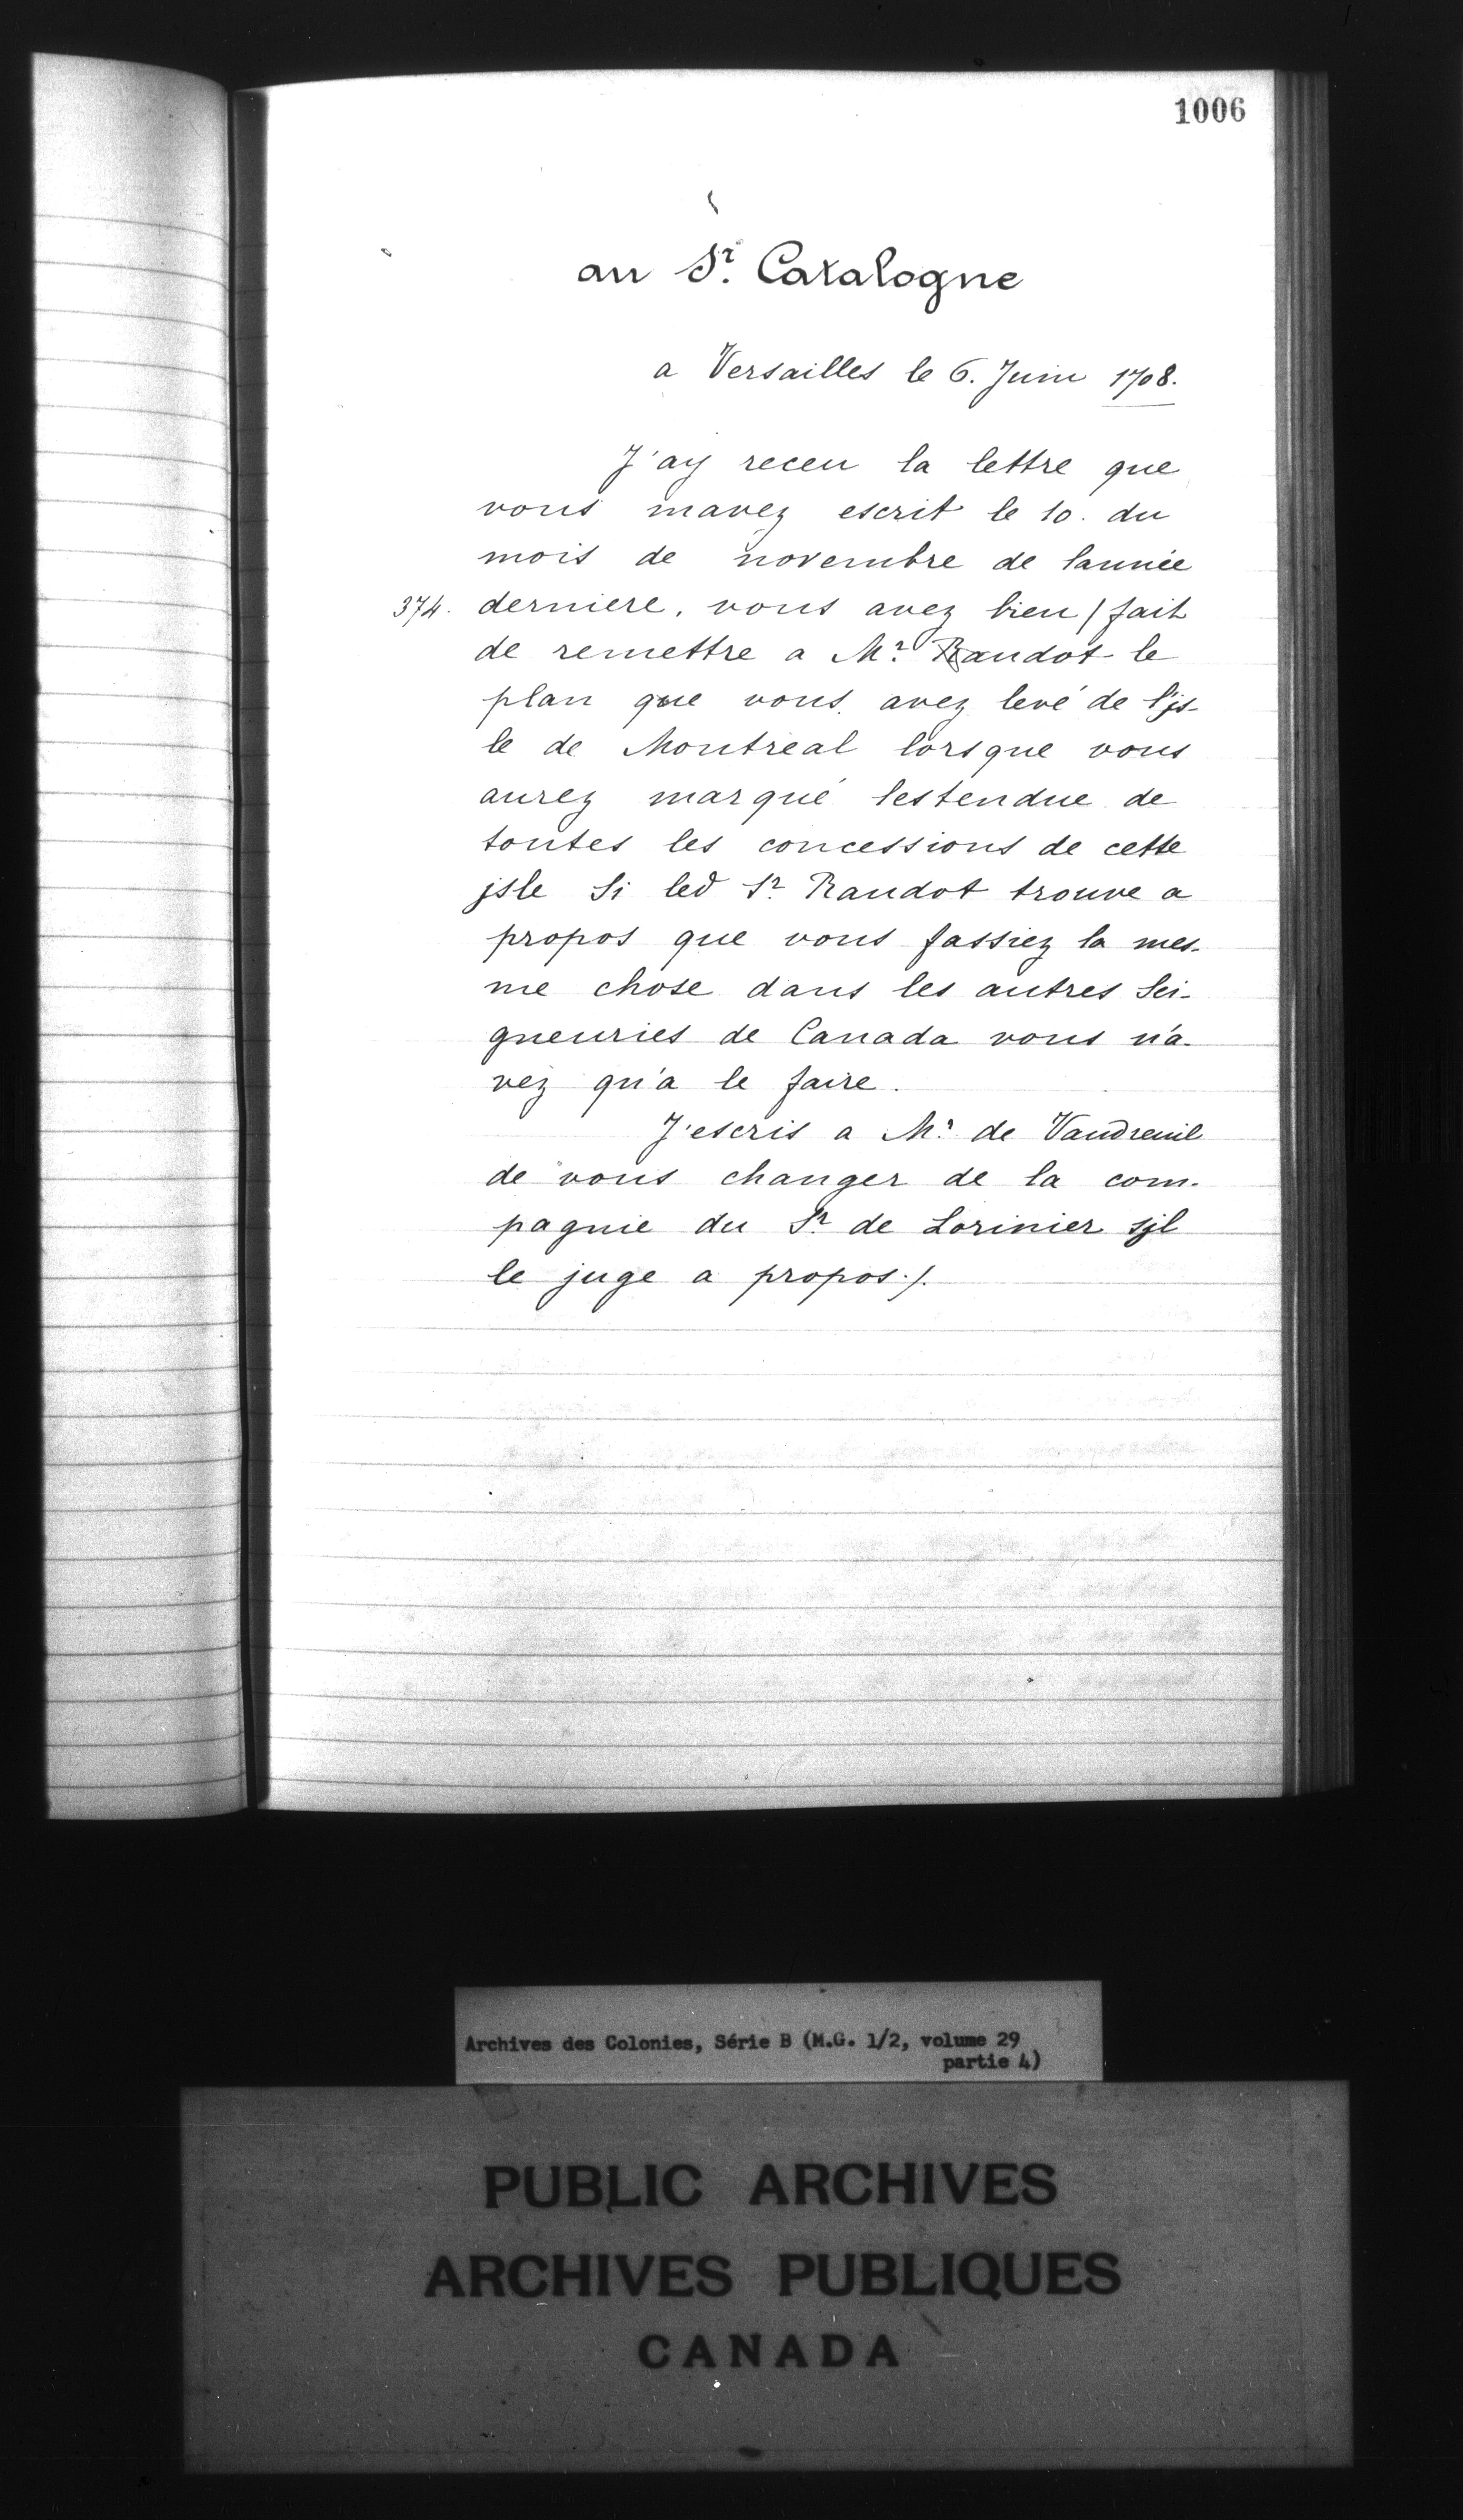 1006
au Sr. Catalogne
a Versailles le 6. Juin 1708.
J'ay receu la lettre que
vous mavez escrit le 10. du
mois de novembre de lannée
374. derniere, vous avez bien / fait
de remettre a Mr. Raudot le
plan que vous avez levé de l'js-
le de Montreal lorsque vous
aurez marqué lestendue de
toutes les concessions de cette
jsle Si led Sr. Raudot trouve a
propos que vous fassiez la mes-
me chose dans les autres Sei-
gneuries de Canada vous n'a-
vez qu'a le faire.
J'escris a Mr. de Vaudreuil
de vous changer de la com-
pagnie du Sr. de Lorinier sjl
le juge a propos./.
Archives des Colonies, Série B (M.G. 1/2, volume 29
partie 4)
PUBLIC ARCHIVES
ARCHIVES PUBLIQUES
CANADA